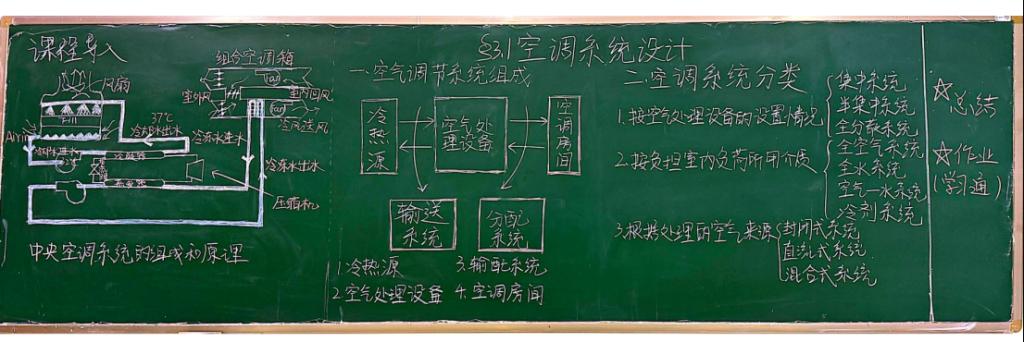 课程导入
风扇
Air in
37℃
冷却水出水
冷却水进水
冷凝器
蒸发器
组合空调箱
室外风
室内回风
fan
fan
冷风送风
冷冻水进水
冷冻水出水
压缩机
中央空调系统的组成和原理
§3.1空调系统设计
一.空气调节系统组成
冷热源
空气处理设备
空调房间
输送系统
分配系统
1.冷热源
3.输配系统
2.空气处理设备
4.空调房间
二.空调系统分类
1.按空气处理设备的设置情况
集中系统
半集中系统
全分散系统
2.按负担室内负荷所用介质
全空气系统
全水系统
空气—水系统
冷剂系统
3.根据处理的空气来源
封闭式系统
直流式系统
混合式系统
☆总结
☆作业
(学习通)